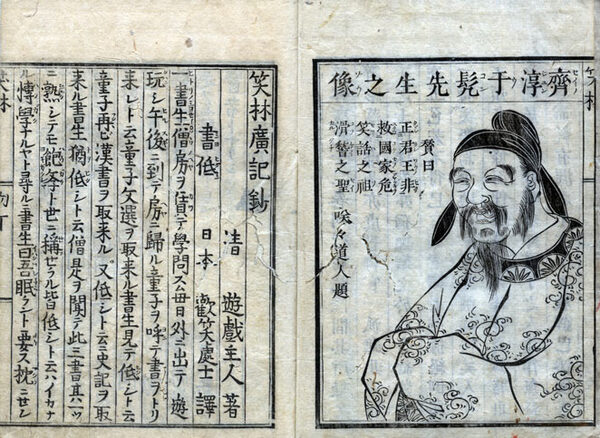 齊淳于髠先生之像
贊曰
正君王非
救國家危
笑話之祖
滑稽之聖
咲々道人題
笑林廣記鈔
書低
清 遊戯主人著
日本 歡笑處士譯
一書生僧房ヲ借テ學問ス毎日外ニ出テ遊
玩シ午後ニ到テ房ニ歸ル童子ヲ呼テ書ヲトリ
来レト云童子文選ヲ取来ル書生見テ低シト云
童子再ヒ漢書ヲ取来ル又低シト云史記ヲ取
来ル書生猶低シト云僧是ヲ聞テ此三書其ハ一ツ
ニ熟シテモ飽學ト世ニ稱セラル皆低シト云ハイカナ
ル博學ナルヤト尋ルニ書生曰吾眠ラント要ス枕ニセン
笑林